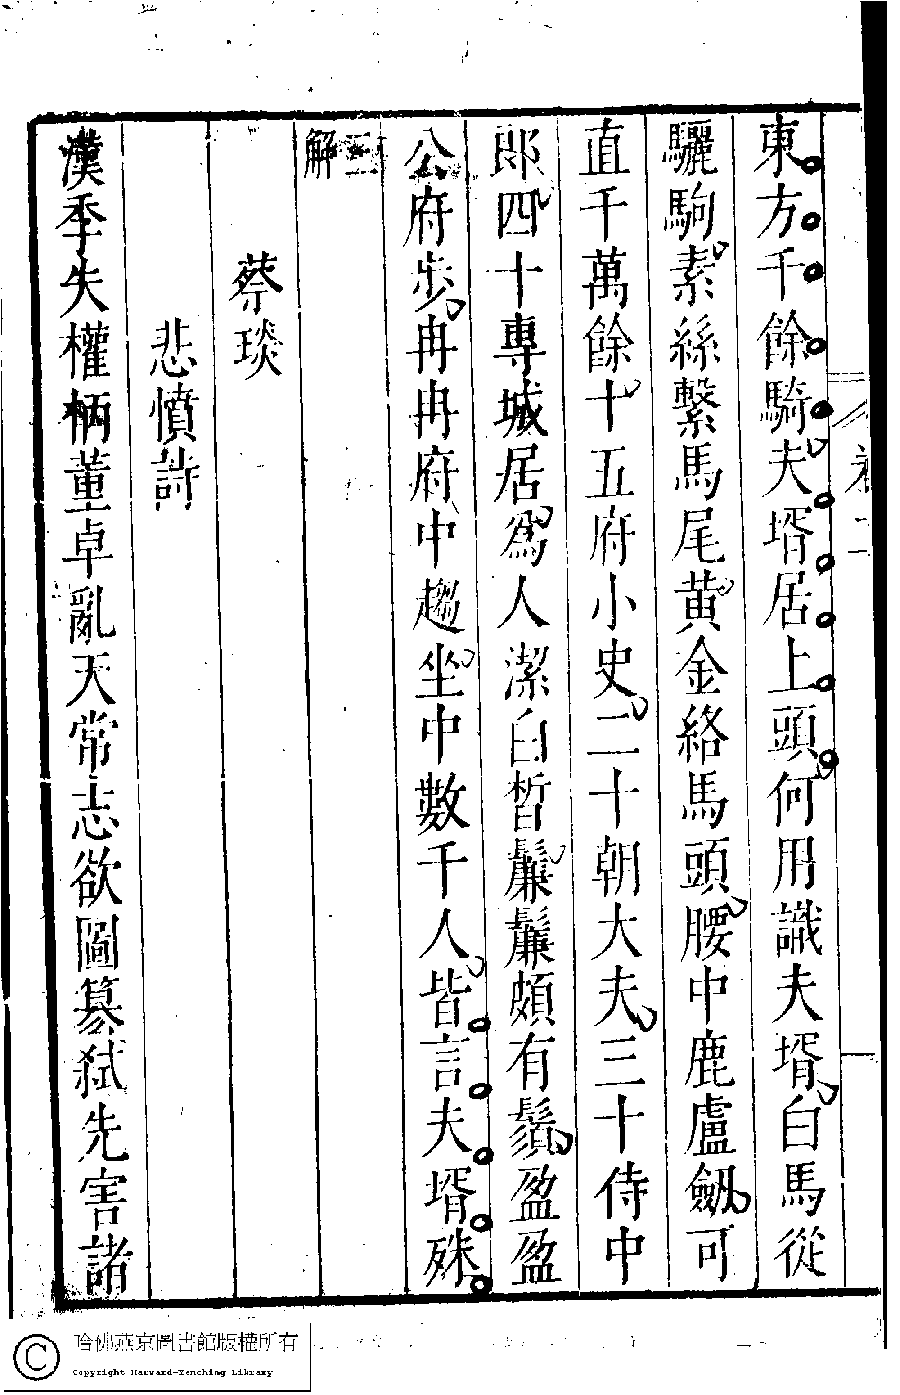 東方千餘騎夫壻居上頭何用識夫壻白馬從
驪駒素絲繫馬尾黃金絡馬頭腰中鹿盧劔可
直千萬餘十五府小史二十朝大夫三十侍中
郎四十專城居為人潔白皙鬑鬑頗有鬚盈盈
公府步冉冉府中趨坐中數千人皆言夫壻殊
三解
蔡琰
悲憤詩
漢季失權柄董卓亂天常志欲圖篡弒先害諸
哈佛燕京圖書館版權所有
Copyright Harvard-Yenching Library